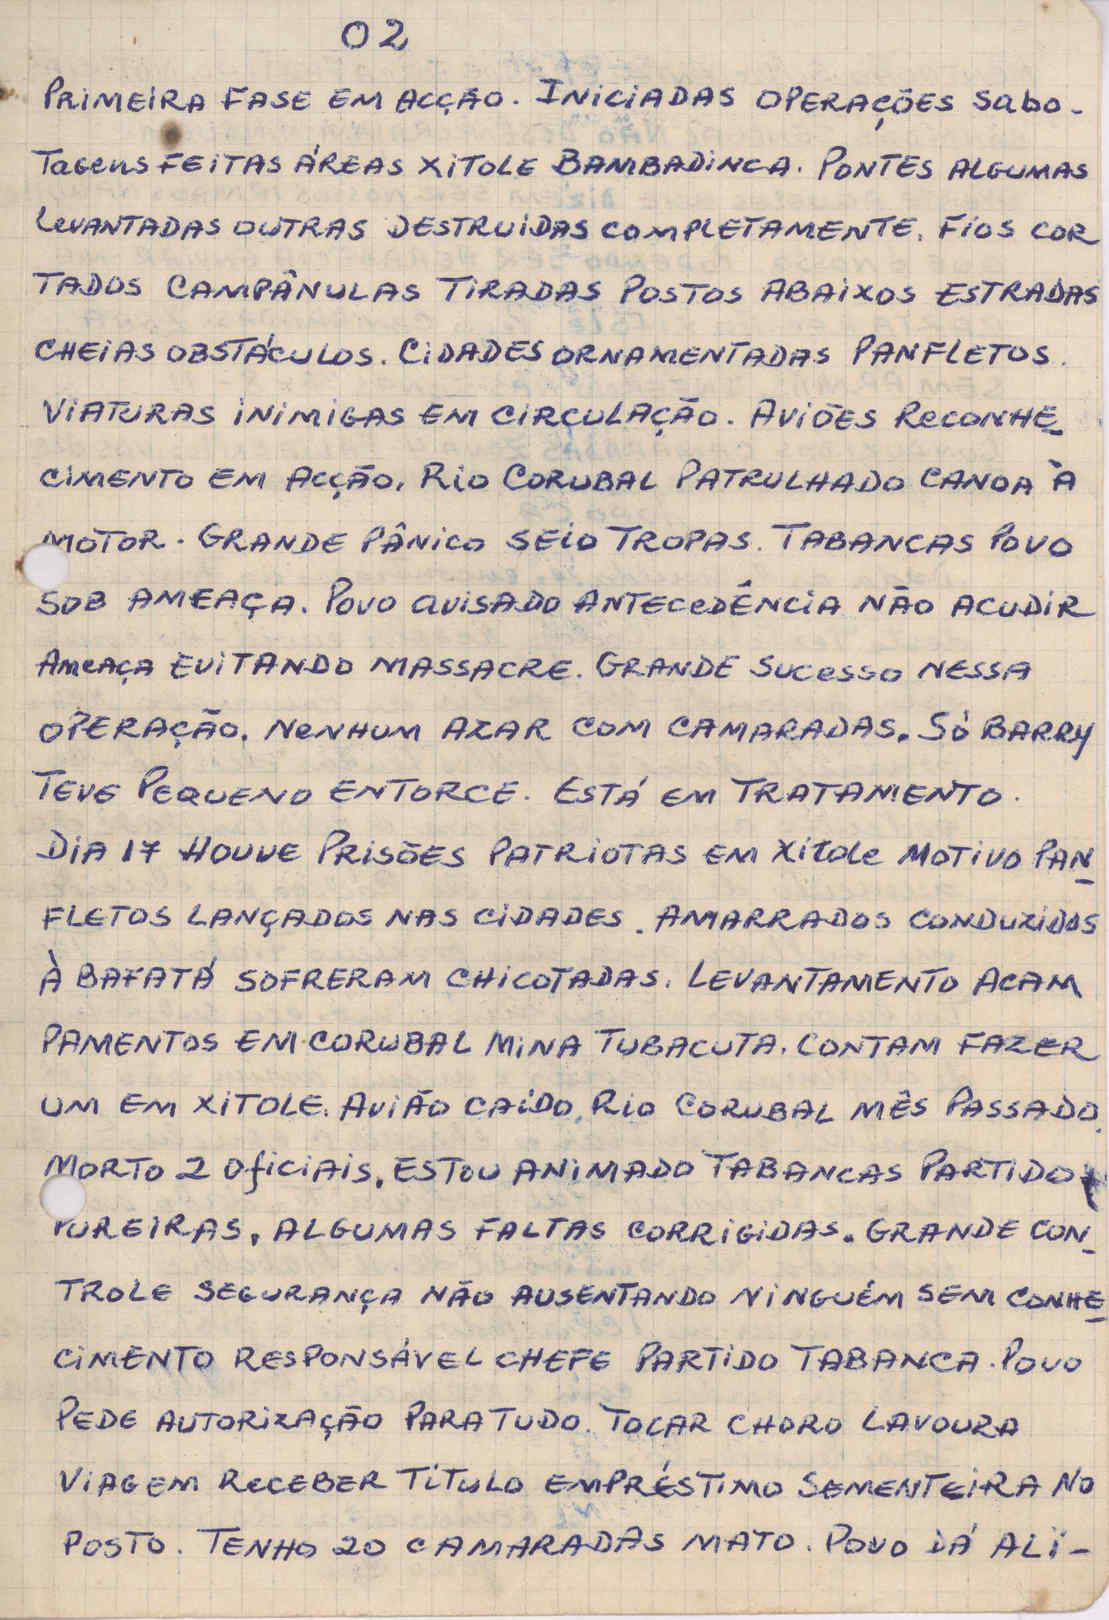 02
PRIMEIRA FASE EM ACÇÃO. INICIADAS OPERAÇÕES SABO-
TAGENS FEITAS ÁREAS XITOLE BAMBADINCA. PONTES ALGUMAS
LEVANTADAS OUTRAS DESTRUIDAS COMPLETAMENTE. FIOS COR
TADOS CAMPÂNULAS TIRADAS POSTOS ABAIXOS ESTRADAS
CHEIAS OBSTÁCULOS. CIDADES ORNAMENTADAS PANFLETOS.
VIATURAS INIMIGAS EM CIRCULAÇÃO. AVIÕES RECONHE-
CIMENTO EM ACÇÃO. RIO CORUBAL PATRULHADO CANOA À
MOTOR. GRANDE PÂNICO SEIO TROPAS. TABANCAS POVO
SOB AMEAÇA. POVO AVISADO ANTECEDÊNCIA NÃO ACUDIR
AMEAÇA EVITANDO MASSACRE. GRANDE SUCESSO NESSA
OPERAÇÃO. NENHUM AZAR COM CAMARADAS. SÓ BARRY
TEVE PEQUENO ENTORCE. ESTÁ EM TRATAMENTO.
DIA 17 HOUVE PRISÕES PATRIOTAS EM XITOLE MOTIVO PAN-
FLETOS LANÇADOS NAS CIDADES. AMARRADOS CONDUZIDOS
À BAFATÁ SOFRERAM CHICOTADAS. LEVANTAMENTO ACAM
PAMENTOS EM CORUBAL MINA TUBACUTA. CONTAM FAZER
UM EM XITOLE. AVIÃO CAÍDO RIO CORUBAL MÊS PASSADO.
MORTO 2 OFICIAIS. ESTOU ANIMADO TABANCAS PARTIDO
ALGUMAS FALTAS CORRIGIDAS. GRANDE CON-
TROLE SEGURANÇA NÃO AUSENTANDO NINGUÉM SEM CONHE-
CIMENTO RESPONSÁVEL CHEFE PARTIDO TABANCA. POVO
PEDE AUTORIZAÇÃO PARA TUDO. TOCAR CHORO LAVOURA
VIAGEM RECEBER TÍTULO EMPRÉSTIMO SEMENTEIRA NO
POSTO. TENHO 20 CAMARADAS MATO. POVO DÁ ALI-